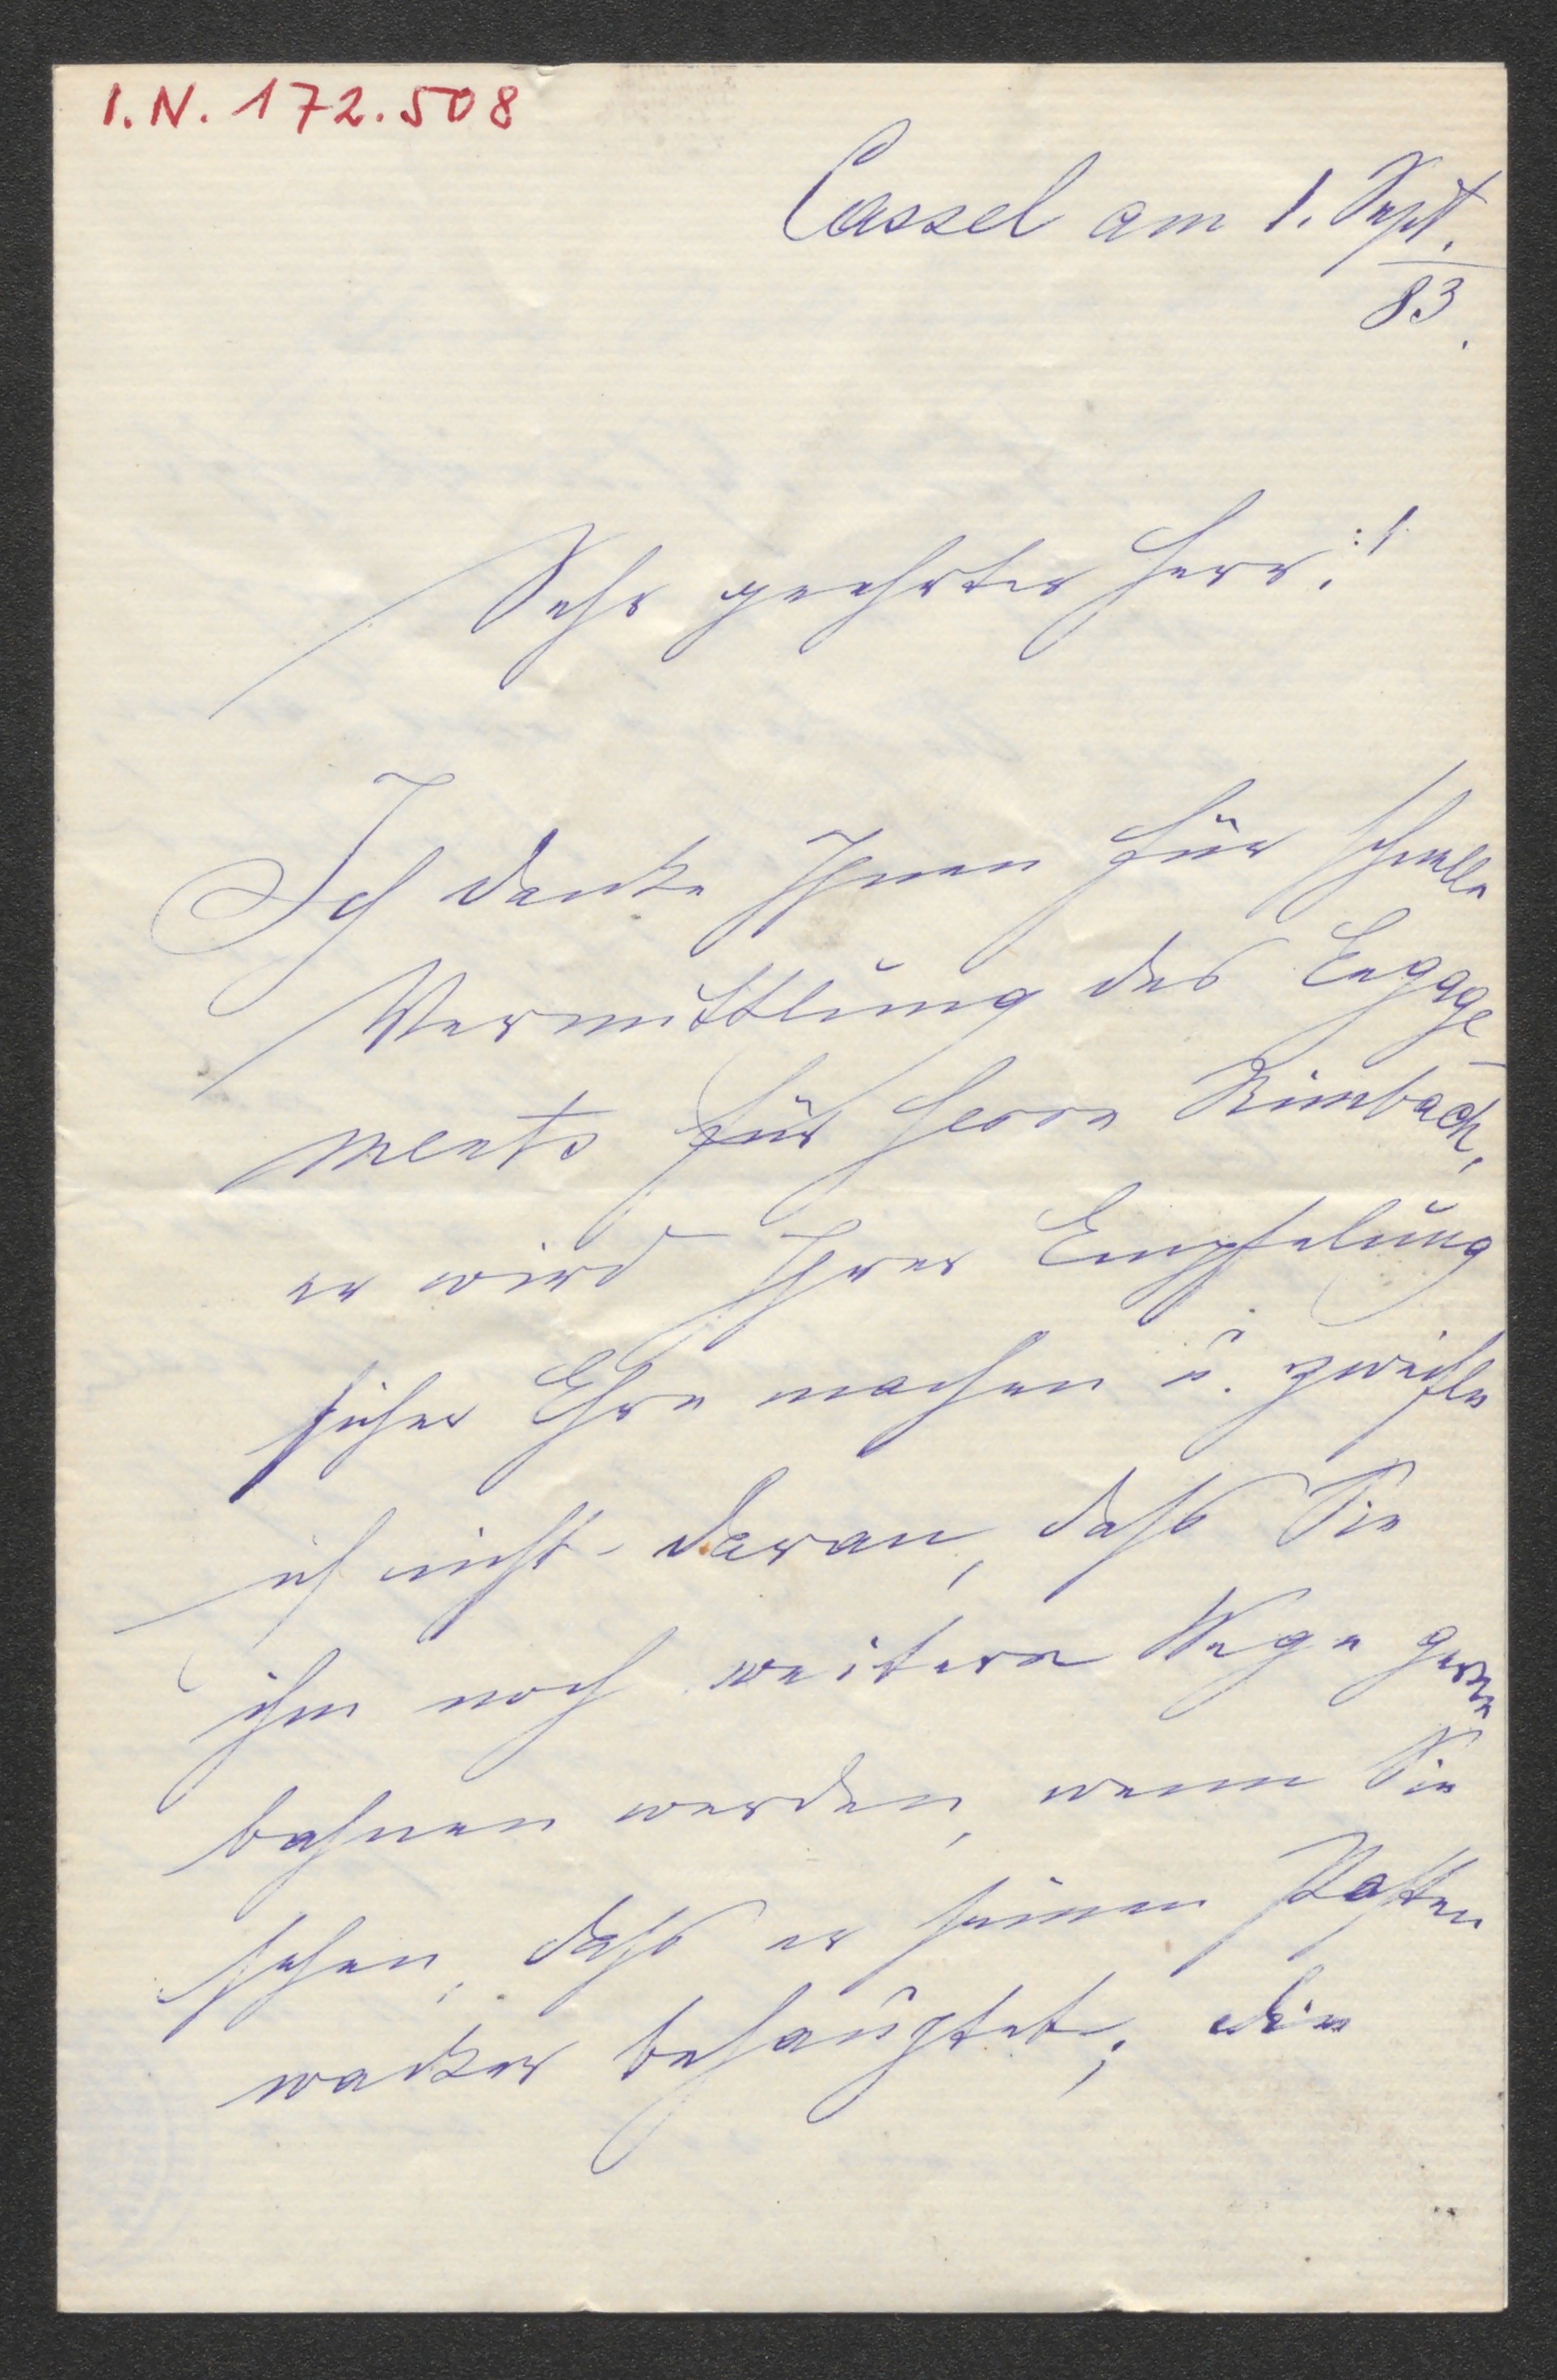 I.N. 172.508
Cassel am 1. Sept.
83.
Sehr geehrter Herr!
Ich danke Ihnen für schnelle
Vermittlung des Engage-
ments für Herrn Rimbach,
er wird Ihrer Empfelung
sicher Ehre machen u. zweifle
ich nicht daran, dass Sie
ihm noch weitere Wege gerne
bahnen werden, wenn Sie
sehen, dass er seinen Posten
wacker behauptet; die